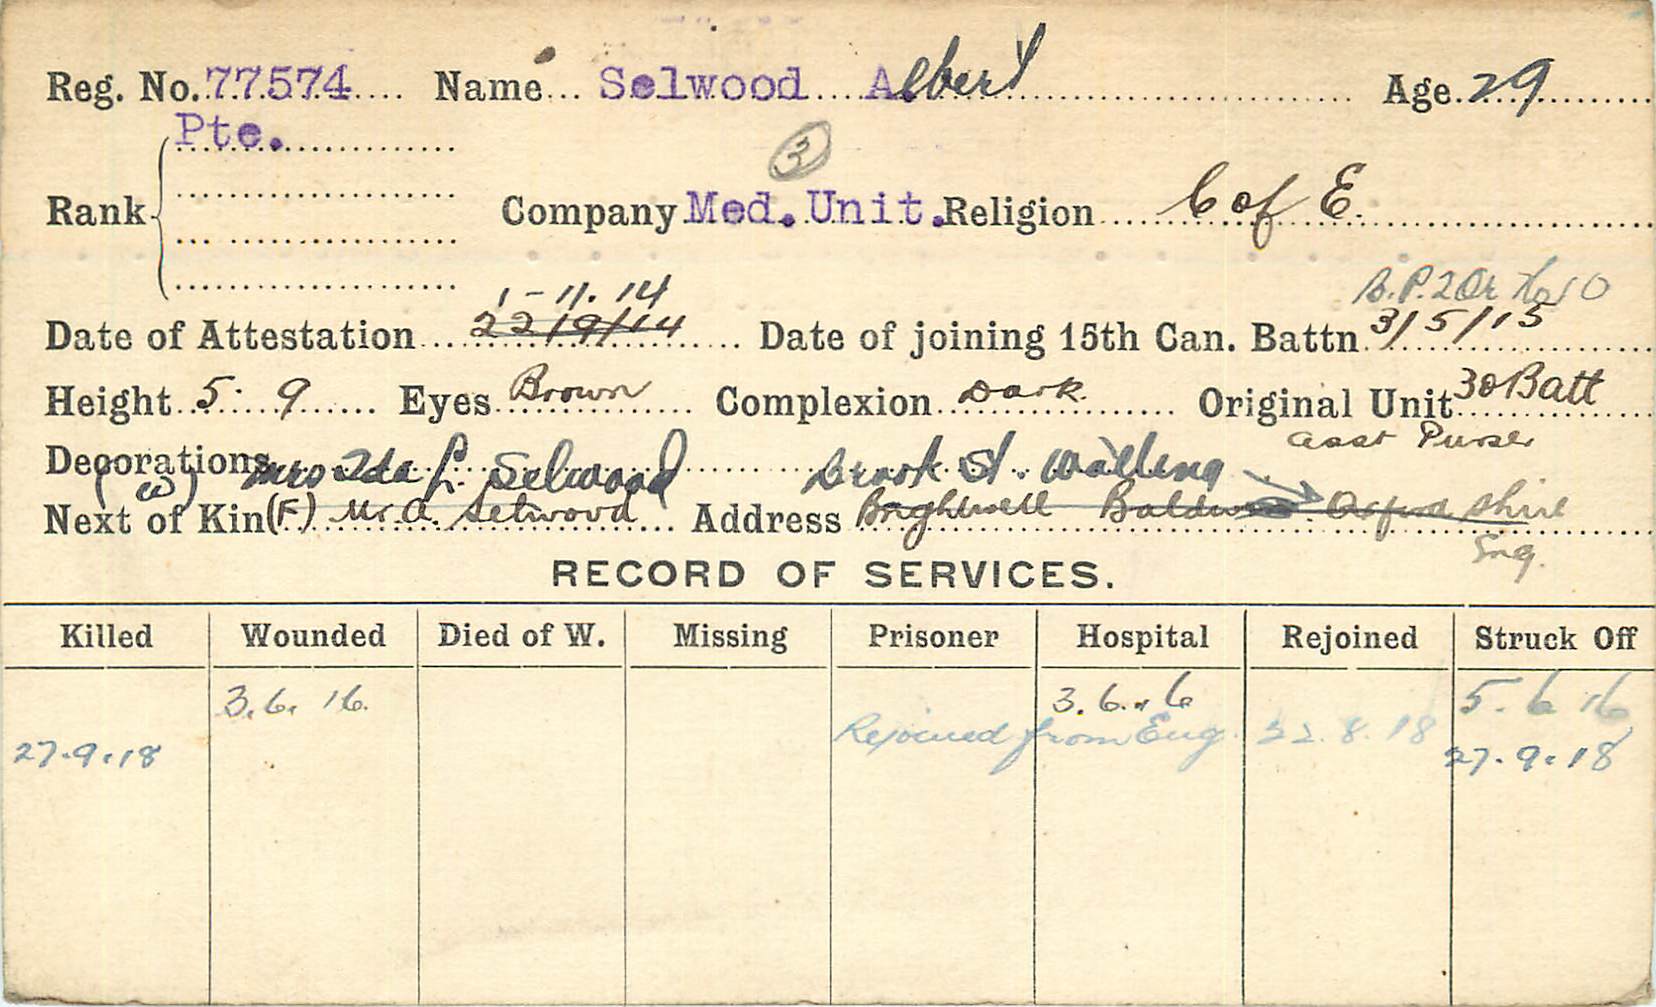 Reg. No. 77574 Name Selwood Albert Age 29
Pte.
3
Rank Company Med. Unit. Religion C of E.
1-11.14
22/9/14
Date of Attestation Date of joining 15th Can. Battn 3/5/15
Height 5. 9 Eyes Brown Complexion Dark. Original Unit 30 Batt
Asst Purser
Decorations Mrs Ida L. Selwood Brook St.
(w)
Next of Kin (F) Mr. A. Selwood Address Brightwell Baldwin Oxford Shire
Eng.
RECORD OF SERVICES.
Killed Wounded Died of W. Missing Prisoner Hospital Rejoined Struck Off
3.6.16. 3.6.16 5.6.16
Rejoined from Eng. 22.8.18
27.9.18 27.9.18